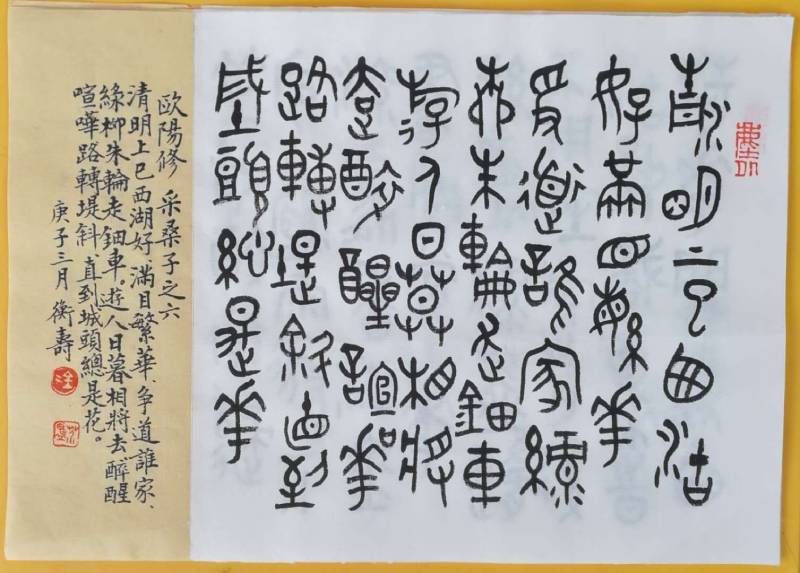 清明上巳西湖
好滿目繁華
爭道誰家綠
柳朱輪走鈿車
游人日暮相將
去醉醒諠華
路轉堤斜直到
城頭總是華
歐陽修 采桑子之六
清明上巳西湖好、滿目繁華、争道誰家、
綠柳朱輪走鈿車。遊人日暮相將去、醉醒
喧嘩路轉堤斜、直到城頭總是花。
庚子三月 衡壽